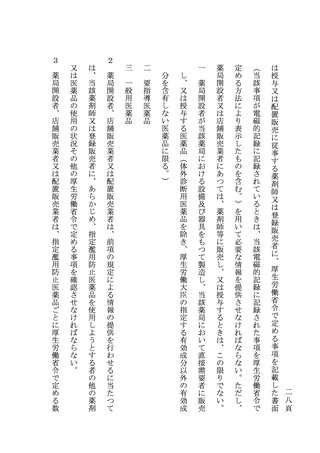 二八頁
は授与又は配置販売に従事する薬剤師又は登録販売者に、厚生労働省令で定める事項を記載した書面
（当該事項が電磁的記録に記録されているときは、当該電磁的記録に記録された事項を厚生労働省令で
定める方法により表示したものを含む。）を用いて必要な情報を提供させなければならない。ただし、
薬局開設者又は店舗販売業者にあつては、薬剤師等に販売し、又は授与するときは、この限りでない。
一　薬局開設者が当該薬局における設備及び器具をもつて製造し、当該薬局において直接需要者に販売
し、又は授与する医薬品（体外診断用医薬品を除き、厚生労働大臣の指定する有効成分以外の有効成
分を含有しない医薬品に限る。）
二　要指導医薬品
三　一般用医薬品
２　薬局開設者、店舗販売業者又は配置販売業者は、前項の規定による情報の提供を行わせるに当たつて
は、当該薬剤師又は登録販売者に、あらかじめ、指定濫用防止医薬品を使用しようとする者の他の薬剤
又は医薬品の使用の状況その他の厚生労働省令で定める事項を確認させなければならない。
３　薬局開設者、店舗販売業者又は配置販売業者は、指定濫用防止医薬品ごとに厚生労働省令で定める数